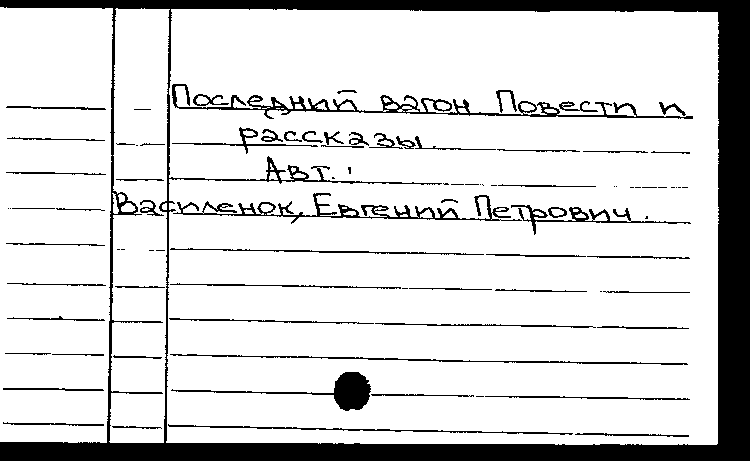 Последний вагон Повести и
рассказы.
Авт.:
Василенок, Евгений Петрович.